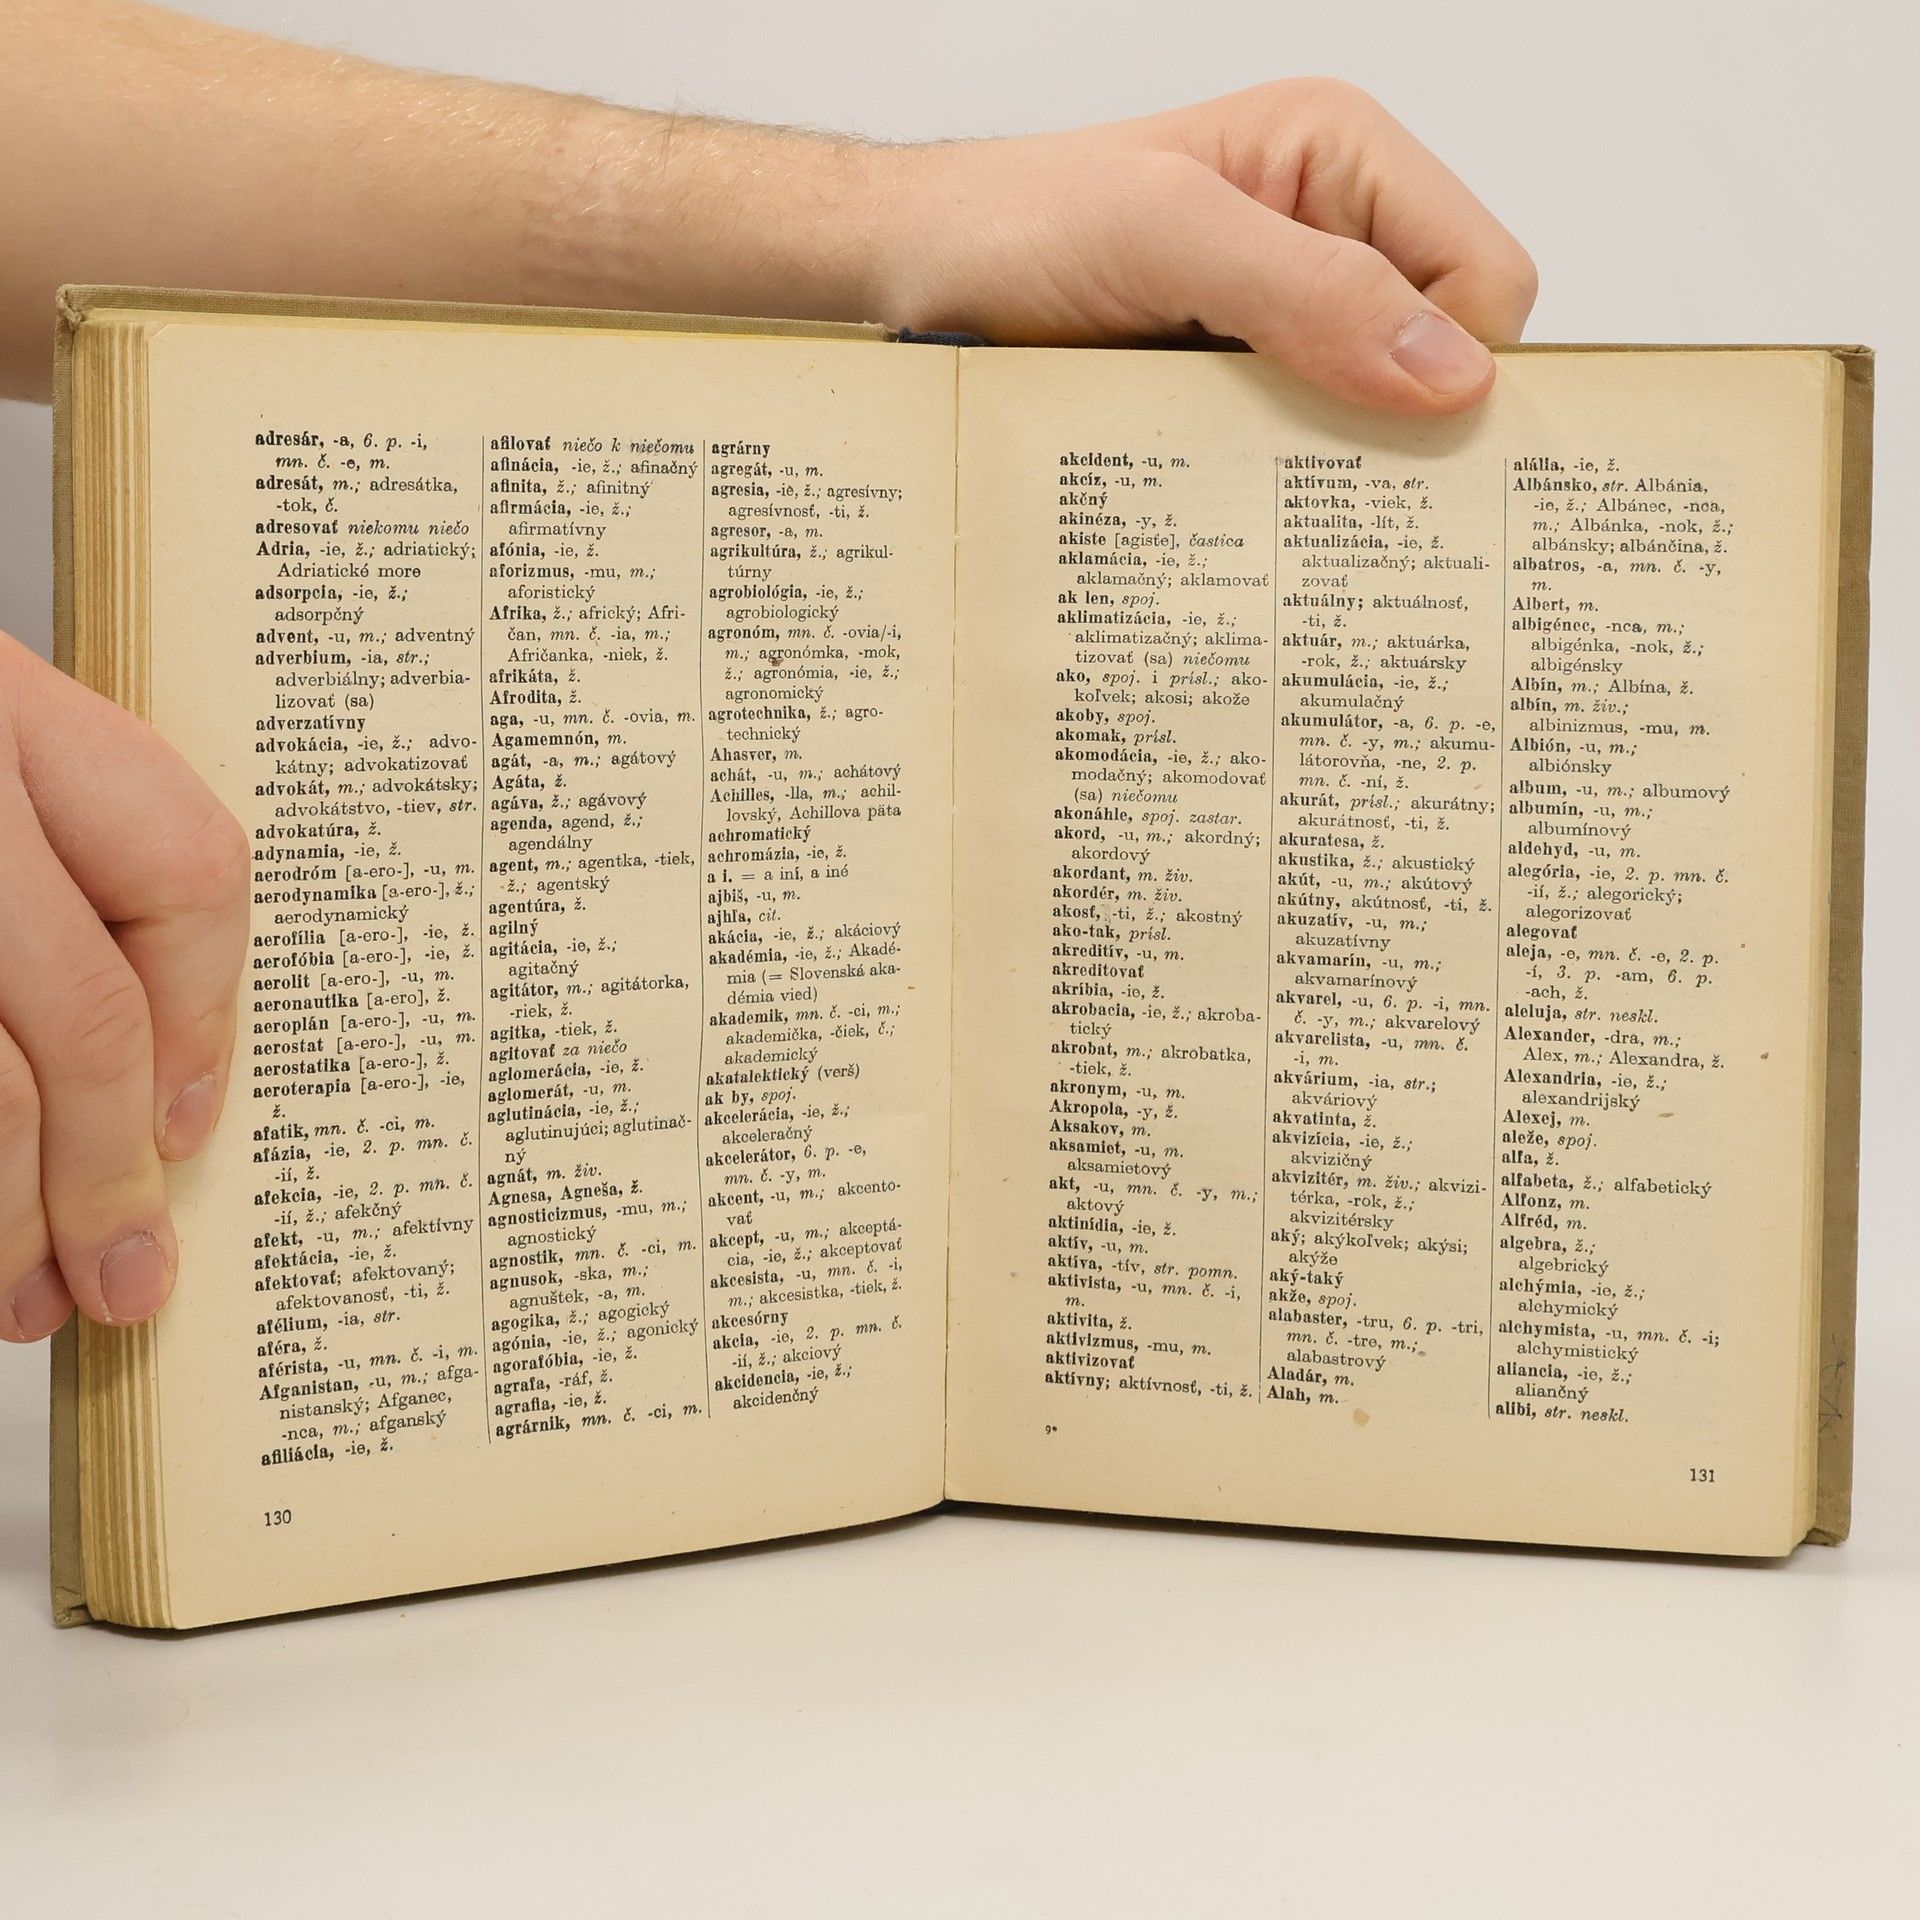 adresár, -a, 6. p. -i,
mn. č. -e, m.
adresát, m.; adresátka,
-tok, č.
adresovať niekomu niečo
Adria, -ie, ž.; adriatický;
Adriatické more
adsorpcia, -ie, ž.;
adsorpčný
advent, -u, m.; adventný
adverbium, -ia, str.;
adverbiálny; adverbia-
lizovať (sa)
adverzatívny
advokácia, -ie, ž.; advo-
kátny; advokatizovať
advokát, m.; advokátsky;
advokátstvo, -tiev, str.
advokatúra, ž.
adynamia, -ie, ž.
aerodróm [a-ero-], -u, m.
aerodynamika [a-ero-], ž.;
aerodynamický
aerofília [a-ero-], -ie, ž.
aerofóbia [a-ero-], -ie, ž.
aerolit [a-ero-], -u, m.
aeronautika [a-ero], ž.
aeroplán [a-ero-], -u, m.
aerostat [a-ero-], -u, m.
aerostatika [a-ero-], ž.
aeroterapia [a-ero-], -ie,
ž.
afatik, mn. č. -ci, m.
afázia, -ie, 2. p. mn. č.
-ií, ž.
afekcia, -ie, 2. p. mn. č.
-ií, ž.; afekčný
afekt, -u, m.; afektívny
afektácia, -ie, ž.
afektovať; afektovaný;
afektovanosť, -ti, ž.
afélium, -ia, str.
aféra, ž.
aférista, -u, mn. č. -i, m.
Afganistan, -u, m.; afga-
nistanský; Afganec,
-nca, m.; afganský
afiliácia, -ie, ž.
afilovať niečo k niečomu
afinácia, -ie, ž.; afinačný
afinita, ž.; afinitný
afirmácia, -ie, ž.;
afirmatívny
afónia, -ie, ž.
aforizmus, -mu, m.;
aforistický
Afrika, ž.; africký; Afri-
čan, mn. č. -ia, m.;
Afričanka, -niek, ž.
afrikáta, ž.
Afrodita, ž.
aga, -u, mn. č. -ovia, m.
Agamemnón, m.
agát, -a, m.; agátový
Agáta, ž.
agáva, ž.; agávový
agenda, agend, ž.;
agendálny
agent, m.; agentka, -tiek,
ž.; agentský
agentúra, ž.
agilný
agitácia, -ie, ž.;
agitačný
agitátor, m.; agitátorka,
-riek, ž.
agitka, -tiek, ž.
agitovať za niečo
aglomerácia, -ie, ž.
aglomerát, -u, m.
aglutinácia, -ie, ž.;
aglutinujúci; aglutinač-
ný
agnát, m. živ.
Agnesa, Agneša, ž.
agnosticizmus, -mu, m.;
agnostický
agnostik, mn. č. -ci, m.
agnusok, -ska, m.;
agnuštek, -a, m.
agogika, ž.; agogický
agónia, -ie, ž.; agonický
agorafóbia, -ie, ž.
agrafa, -ráf, ž.
agrafia, -ie, ž.
agrárnik, mn. č. -ci, m.
agrárny
agregát, -u, m.
agresia, -ie, ž.; agresívny;
agresívnosť, -ti, ž.
agresor, -a, m.
agrikultúra, ž.; agrikul-
túrny
agrobiológia, -ie, ž.;
agrobiologický
agronóm, mn. č. -ovia/-i,
m.; agronómka, -mok,
ž.; agronómia, -ie, ž.;
agronomický
agrotechnika, ž.; agro-
technický
Ahasver, m.
achát, -u, m.; achátový
Achilles, -lla, m.; achil-
lovský, Achillova päta
achromatický
achromázia, -ie, ž.
a i. = a iní, a iné
ajbiš, -u, m.
ajhľa, cit.
akácia, -ie, ž.; akáciový
akadémia, -ie, ž.; Akadé-
mia (= Slovenská aka-
démia vied)
akademik, mn. č. -ci, m.;
akademička, -čiek, č.;
akademický
akatalektický (verš)
ak by, spoj.
akcelerácia, -ie, ž.;
akceleračný
akcelerátor, 6. p. -e,
mn. č. -y, m.
akcent, -u, m.; akcento-
vať
akcept, -u, m.; akceptá-
cia, -ie, ž.; akceptovať
akcesista, -u, mn. č. -i,
m.; akcesistka, -tiek, ž.
akcesórny
akcia, -ie, 2. p. mn. č.
-ií, ž.; akciový
akcidencia, -ie, ž.;
akcidenčný
130
akcident, -u, m.
akcíz, -u, m.
akčný
akinéza, -y, ž.
akiste [agisťe], častica
aklamácia, -ie, ž.;
aklamačný; aklamovať
ak len, spoj.
aklimatizácia, -ie, ž.;
aklimatizačný; aklima-
tizovať (sa) niečomu
ako, spoj. i prísl.; ako-
koľvek; akosi; akože
akoby, spoj.
akomak, prísl.
akomodácia, -ie, ž.; ako-
modačný; akomodovať
(sa) niečomu
akonáhle, spoj. zastar.
akord, -u, m.; akordný;
akordový
akordant, m. živ.
akordér, m. živ.
akosť, -ti, ž.; akostný
ako-tak, prísl.
akreditív, -u, m.
akreditovať
akríbia, -ie, ž.
akrobacia, -ie, ž.; akroba-
tický
akrobat, m.; akrobatka,
-tiek, ž.
akronym, -u, m.
Akropola, -y, ž.
Aksakov, m.
aksamiet, -u, m.
aksamietový
akt, -u, mn. č. -y, m.;
aktový
aktinídia, -ie, ž.
aktív, -u, m.
aktíva, -tív, str. pomn.
aktivista, -u, mn. č. -i,
m.
aktivita, ž.
aktivizmus, -mu, m.
aktivizovať
aktívny; aktívnosť, -ti, ž.
aktivovať
aktívum, -va, str.
aktovka, -viek, ž.
aktualita, -lít, ž.
aktualizácia, -ie, ž.
aktualizačný; aktuali-
zovať
aktuálny; aktuálnosť,
-ti, ž.
aktuár, m.; aktuárka,
-rok, ž.; aktuársky
akumulácia, -ie, ž.;
akumulačný
akumulátor, -a, 6. p. -e,
mn. č. -y, m.; akumu-
látorovňa, -ne, 2. p.
mn. č. -ní, ž.
akurát, prísl.; akurátny;
akurátnosť, -ti, ž.
akuratesa, ž.
akustika, ž.; akustický
akút, -u, m.; akútový
akútny, akútnosť, -ti, ž.
akuzatív, -u, m.;
akuzatívny
akvamarín, -u, m.;
akvamarínový
akvarel, -u, 6. p. -i, mn.
č. -y, m.; akvarelový
akvarelista, -u, mn. č.
-i, m.
akvárium, -ia, str.;
akváriový
akvatinta, ž.
akvizícia, -ie, ž.;
akvizičný
akvizitér, m. živ.; akvizi-
térka, -rok, ž.;
akvizitérsky
aký; akýkoľvek; akýsi;
akýže
aký-taký
akže, spoj.
alabaster, -tru, 6. p. -tri,
mn. č. -tre, m.;
alabastrový
Aladár, m.
Alah, m.
alália, -ie, ž.
Albánsko, str. Albánia,
-ie, ž.; Albánec, -nca,
m.; Albánka, -nok, ž.;
albánsky; albánčina, ž.
albatros, -a, mn. č. -y,
m.
Albert, m.
albigénec, -nca, m.;
albigénka, -nok, ž.;
albigénsky
Albín, m.; Albína, ž.
albín, m. živ.;
albinizmus, -mu, m.
Albión, -u, m.;
albiónsky
album, -u, m.; albumový
albumín, -u, m.;
albumínový
aldehyd, -u, m.
alegória, -ie, 2. p. mn. č.
-ií, ž.; alegorický;
alegorizovať
alegovať
aleja, -e, mn. č. -e, 2. p.
-í, 3. p. -am, 6. p.
-ach, ž.
aleluja, str. neskl.
Alexander, -dra, m.;
Alex, m.; Alexandra, ž.
Alexandria, -ie, ž.;
alexandrijský
Alexej, m.
aleže, spoj.
alfa, ž.
alfabeta, ž.; alfabetický
Alfonz, m.
Alfréd, m.
algebra, ž.;
algebrický
alchýmia, -ie, ž.;
alchymický
alchymista, -u, mn. č. -i;
alchymistický
aliancia, -ie, ž.;
aliančný
alibi, str. neskl.
9*
131